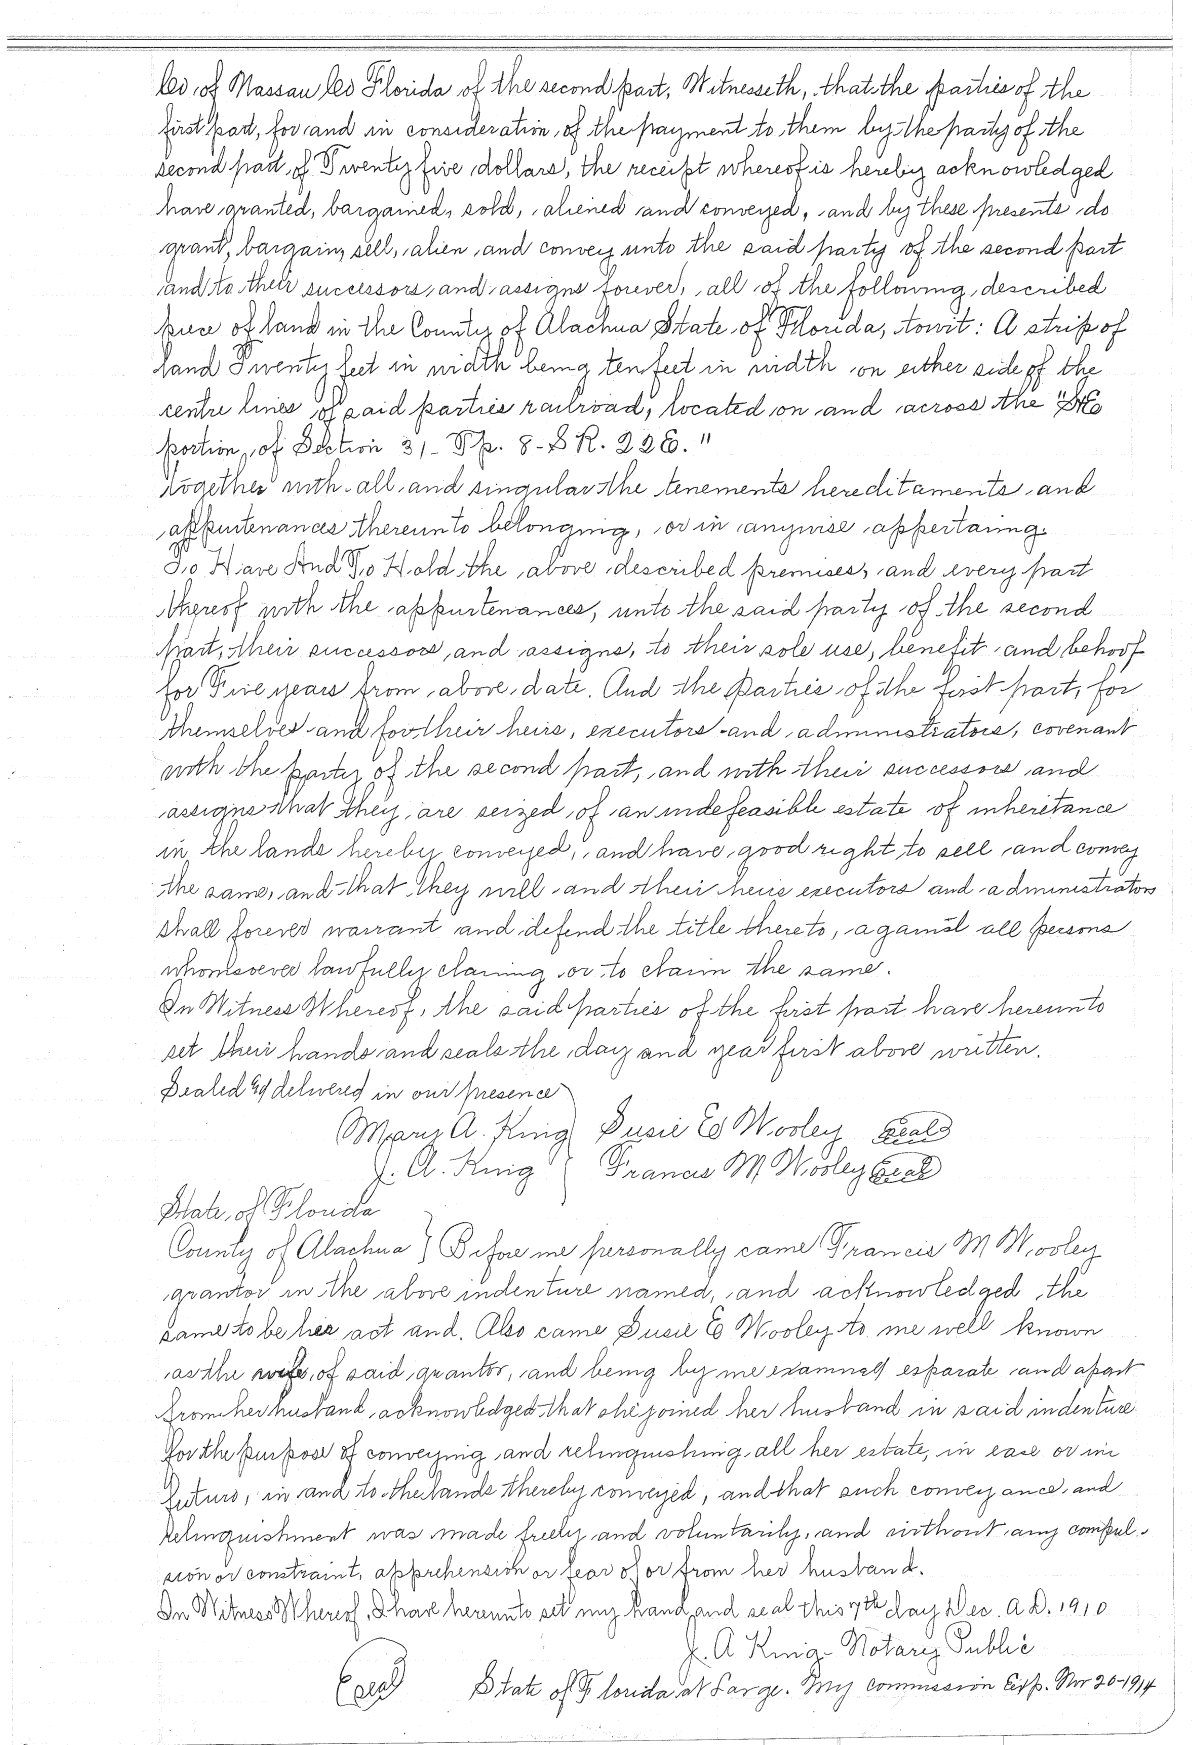 Co, of Nassau Co Florida of the second part, Witnesseth, that the parties of the
first part, for and in consideration of the payment to them by the party of the
second part of Twenty five dollars, the receipt whereof is hereby acknowledged
have granted, bargained, sold, aliened and conveyed, and by these presents do
grant, bargain, sell, alien and convey unto the said party of the second part
and to their successors and assigns forever, all of the following described
piece of land in the County of Alachua State of Florida, towit: A strip of
land Twenty feet in width being ten feet in width on either side of the
centre lines of said parties railroad, located on and across the "NE
portion, of Section 31- Tp. 8- S R. 22E."
together with all and singular the tenements hereditaments and
appurtenances thereunto belonging, or in anywise appertaing.
To Have And To Hold the above described premises, and every part
thereof with the appurtenances, unto the said party of the second
part, their successors and assigns, to their sole use, benefit and behoof
for Five years from above date. And the parties of the first part, for
themselves and for their heirs, executors and administrators, covenant
with the party of the second part, and with their successors and
assigns that they are seized of an indefeasible estate of inheritance
in the lands hereby conveyed, and have good right to sell and convey
the same, and that they will and their heirs executors and administrators
shall forever warrant and defend the title thereto, against all persons
whomsoever lawfully claming or to claim the same.
In Witness Whereof, the said parties of the first part have hereunto
set their hands and seals the day and year first above written.
Sealed and delivered in our presence
Mary A. King Susie E Wooley Seal
J. A. King Francis M Wooley Seal
State of Florida
County of Alachua } Before me personally came Francis M Wooley
grantor in the above indenture named, and acknowledged the
same to be her act and. Also came Susie E Wooley to me well known
as the wife of said grantor, and being by me examined esparate and apart
from her husband acknowledged that she joined her husband in said indenture
for the purpose of conveying and relinquishing all her estate, in ease or in
futuro, in and to the lands thereby conveyed, and that such conveyance and
relinquishment was made freely and voluntarily, and without any compul-
sion or constraint, apprehension or fear of or from her husband.
In Witness Whereof, I have hereunto set my hand and seal this 7th day Dec. A.D. 1910
J. A King Notary Public
Seal State of Florida at Large. My commission Exp. Nov 20-1914